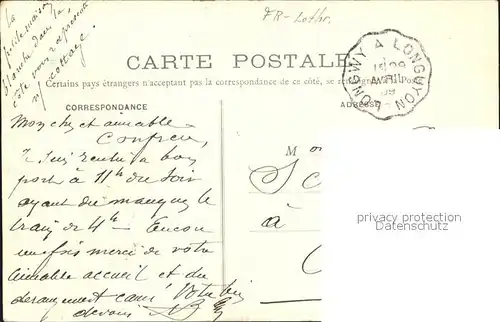 La
petite maison
blanche dans la
côte vous représente
n/ cottage.
FR-Lothr.
CARTE POSTALE
Certains pays étrangers n'acceptant pas la correspondance de ce côté, se
LONGWY A LONGUYON
15 29
AVRIL
09
CORRESPONDANCE
ADRESSE
Mon cher et aimable
Confrère,
Je suis rentré à bon
port à 11h du soir
ayant du manquer le
train de 4h Encore
une fois merci de votre
aimable accueil et du
dérangement causé Votre bien
dévoué
M
à
privacy protection
watermark